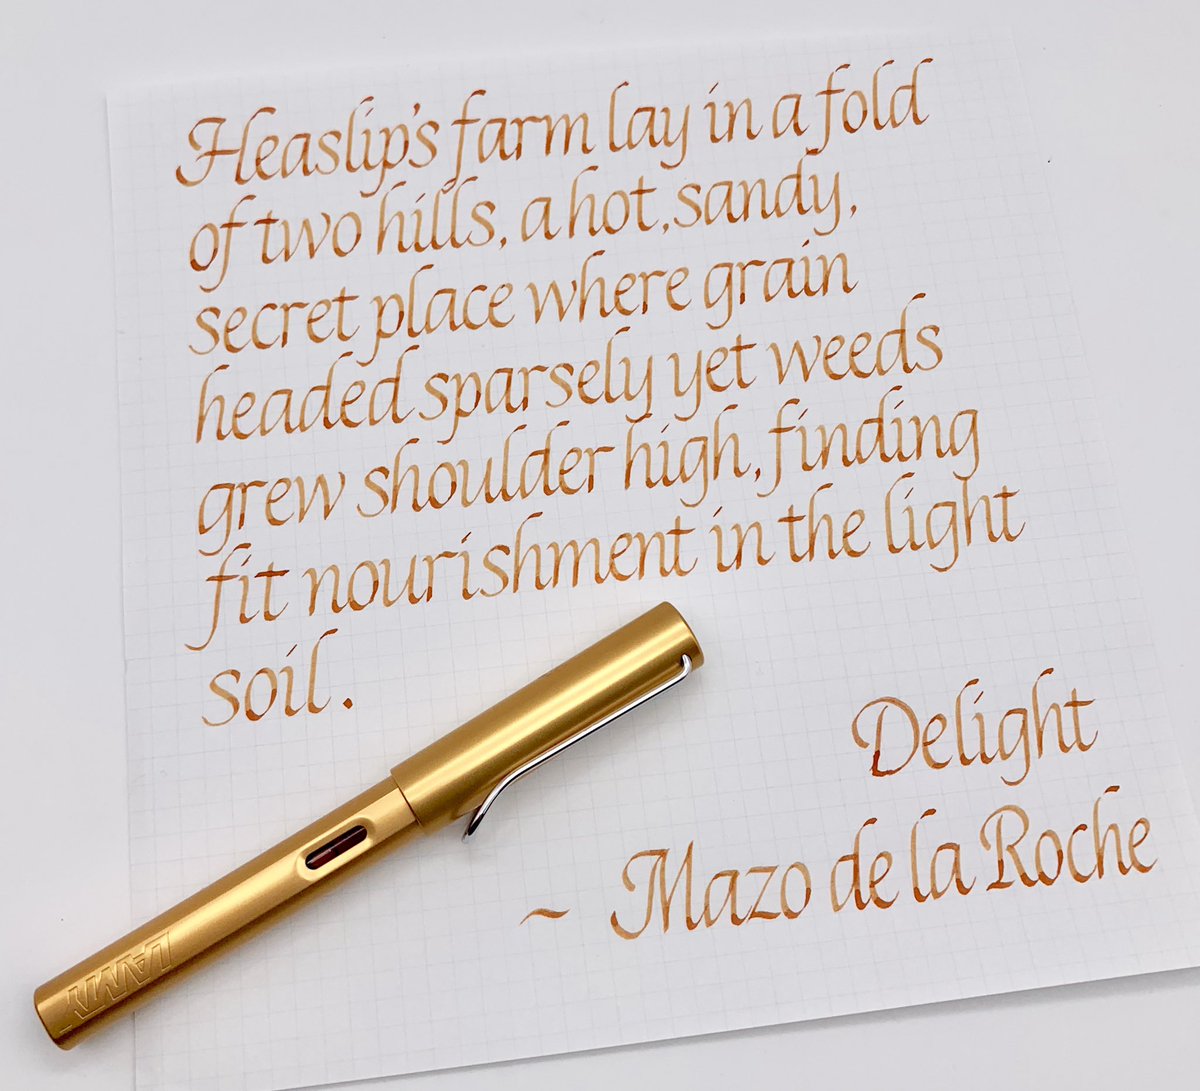 Heaslip's farm lay in a fold
of two hills, a hot, sandy,
secret place where grain
headed sparsely yet weeds
grew shoulder high, finding
fit nourishment in the light
soil.
Delight
~ Mazo de la Roche
LAMY